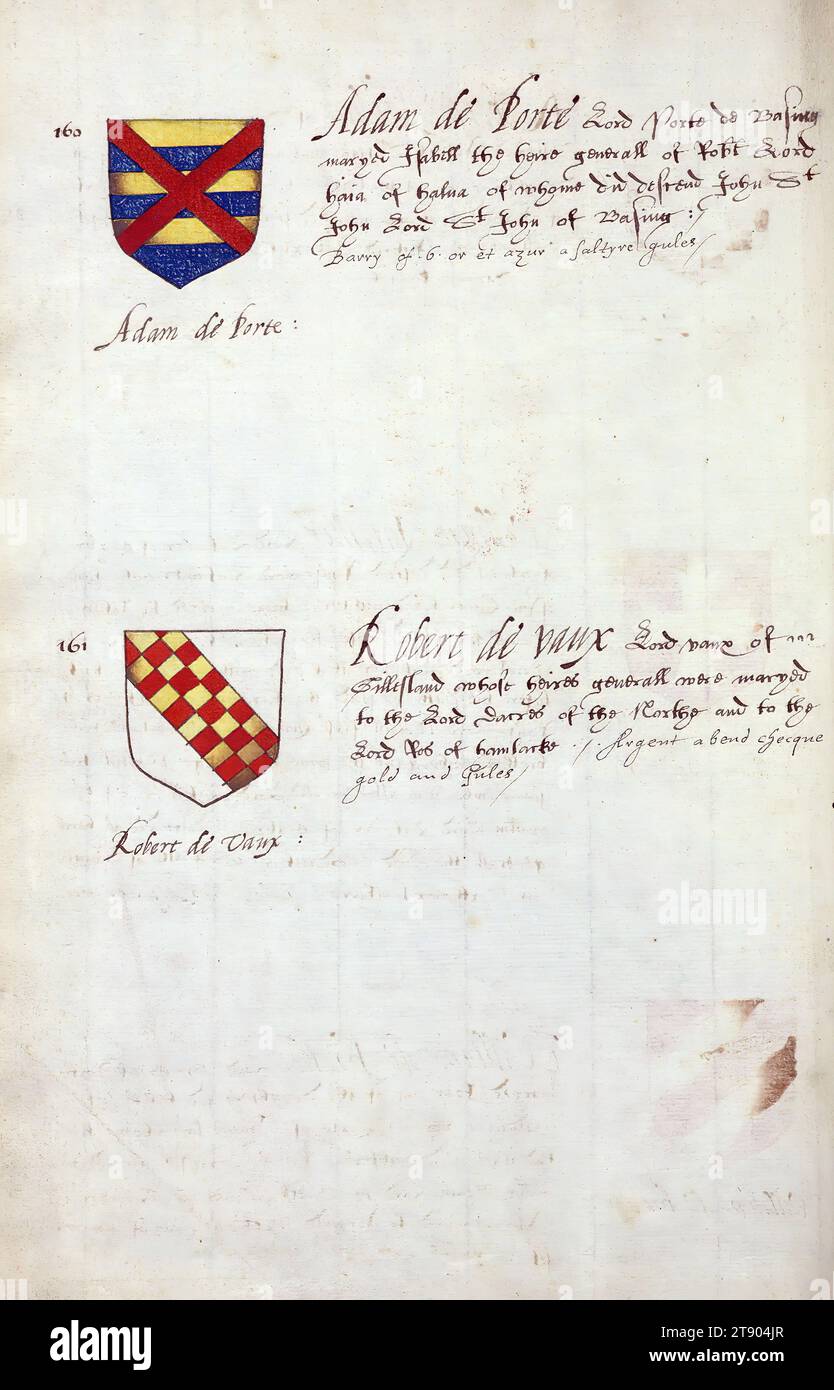 160
Adam de Porte Lord Porte de Basing
maryed Isabell the heire generall of Robt Lord
haia of halua of whome did descend John St
John Lord St John of Basing :/
Barry of .6. or et azur a saltyre gules/
Adam de Porte :
161
Robert de vaux Lord vaux of
Gillesland whose heires generall were maryed
to the Lord dacres of the Northe and to the
Lord Ros of hamlacke ./. Argent a bend checque
gold and Gules/
Robert de Vaux :
alamy
alamy
Image ID: 2T904JR
www.alamy.com